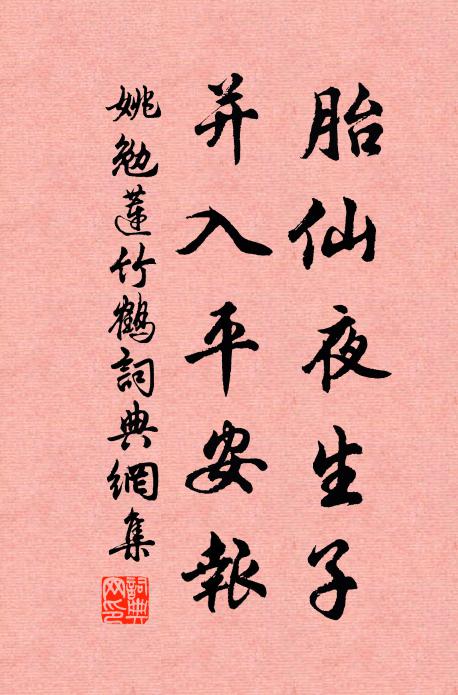 胎仙夜生子
并入平安報
姚勉蓮竹鶴詞典網集
詞典網印